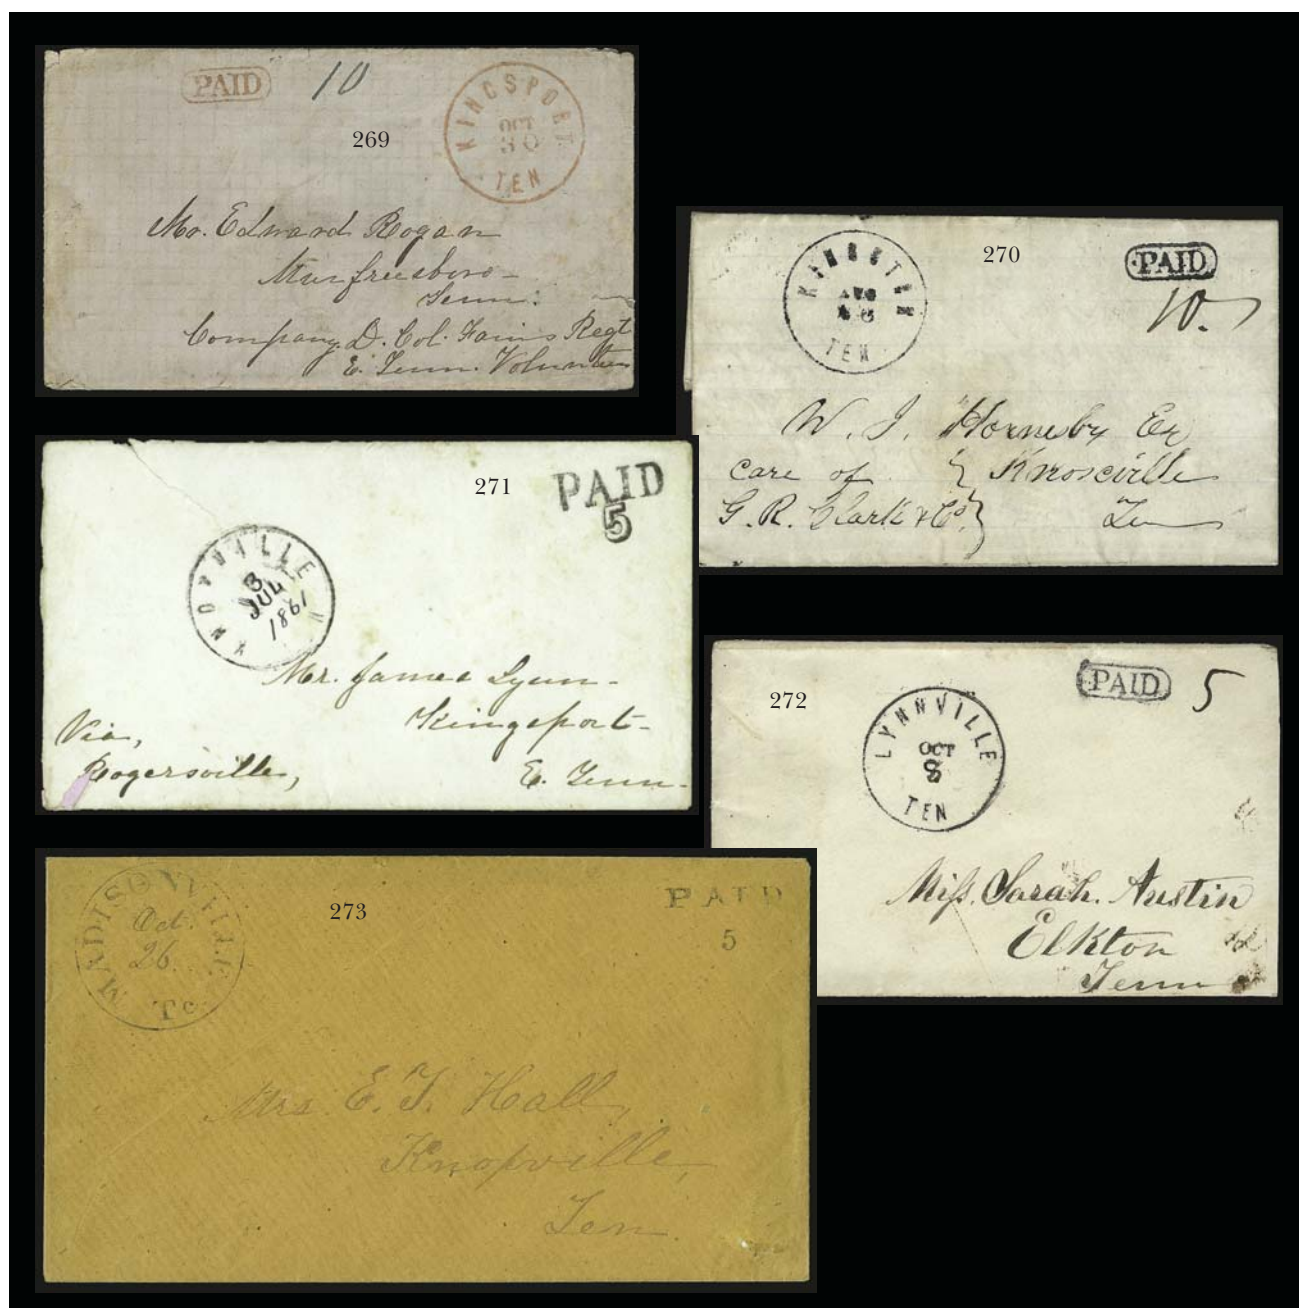 PAID 10
269
KINGSPORT
OCT
30
TEN
Mr. Edward Rogan
Murfreesboro
Tenn.
Company D. Col. Fains Regt
E. Tenn. Volunteers
270
KINGSTON
AUG
TEN
PAID
10.
W. J. Hornsby Esq
care of } Knoxville
G. R. Clark & Co. } Ten
271
PAID
5
KNOXVILLE
JUL
1861
Mr. James Lynn
Kingsport
Via,
Rogersville, E. Tenn.
272
LYNNVILLE
OCT
8
TEN
PAID 5
Miss. Sarah. Austin
Elkton
Tenn
273
MADISONVILLE
Oct.
26
Te
PAID
5
Mrs E. T. Hall,
Knoxville,
Ten.